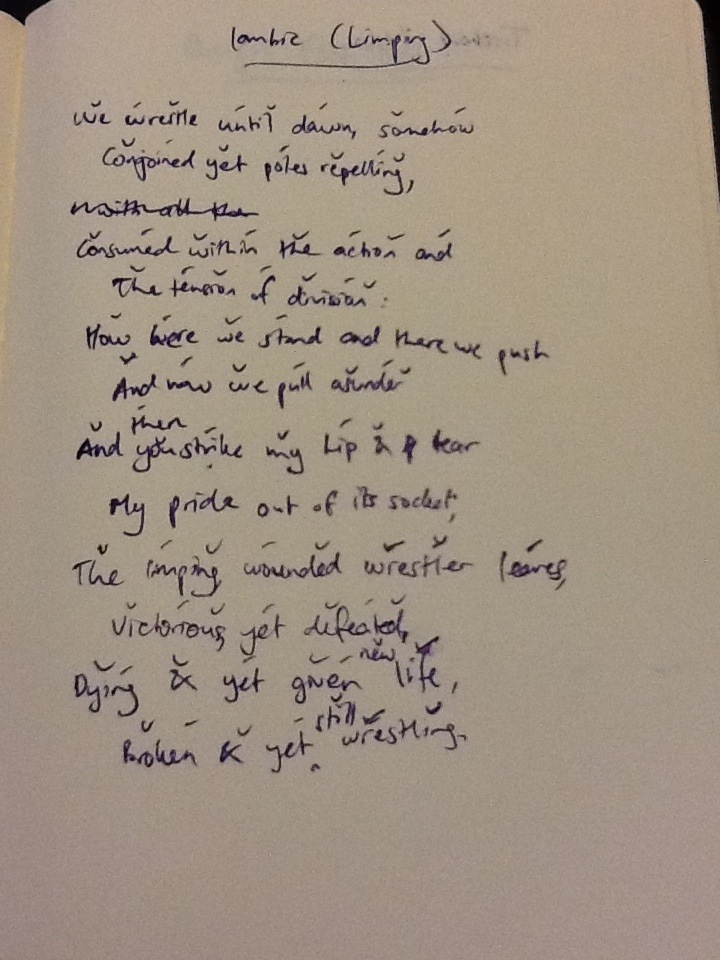 Iambic (Limping)
We wrestle until dawn, somehow
Conjoined yet poles repelling,
with all the
Consumed within the action and
The tension of division:
How here we stand and there we push
And now we pull asunder
then
And you strike my hip & tear
My pride out of its socket;
The limping, wounded wrestler leaves,
Victorious, yet defeated,
new
Dying & yet given life,
still
Broken & yet wrestling.